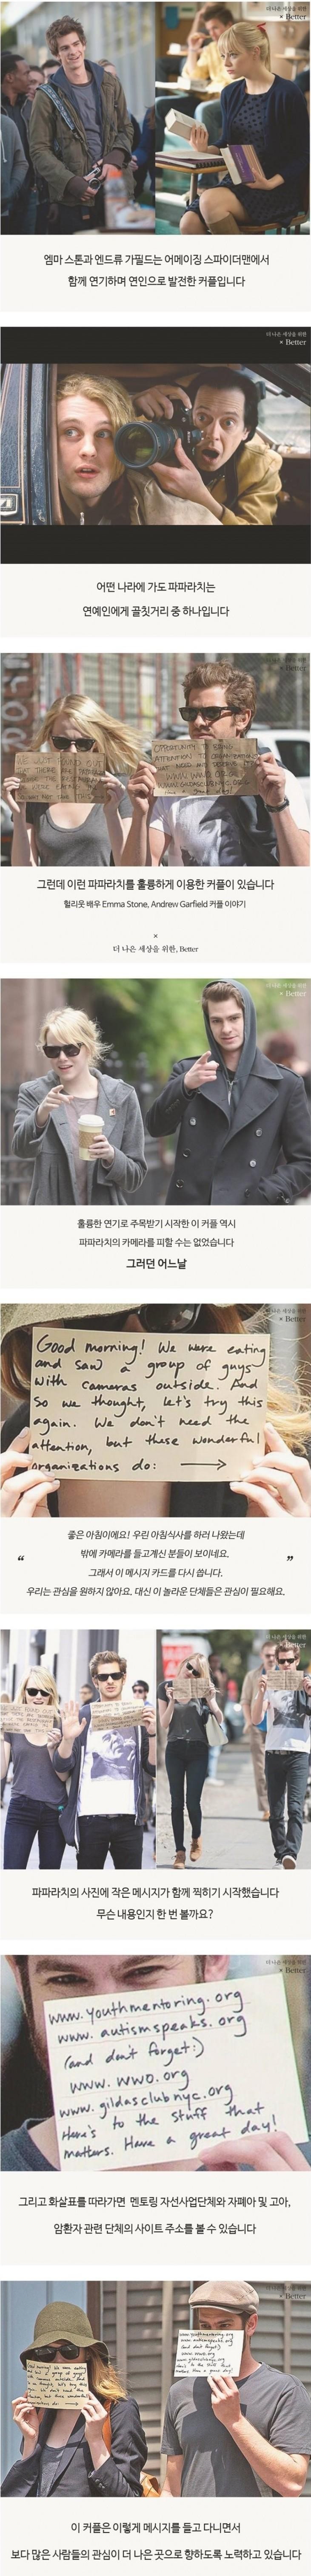 더 나은 세상을 위한
× Better
엠마 스톤과 엔드류 가필드는 어메이징 스파이더맨에서
함께 연기하며 연인으로 발전한 커플입니다
더 나은 세상을 위한
× Better
어떤 나라에 가도 파파라치는
연예인에게 골칫거리 중 하나입니다
× Better
WE WENT FOUND OUT
THAT THERE ARE
THE RESTAURANT
WE WERE EATING
SO WHY NOT THIS
OPPORTUNITY TO BRING
ATTENTION TO ORGANIZATIONS
THAT NEED AND DESERVE IT
WWW.WWO.ORG
WWW.GILDASCLUBNYC.ORG
그런데 이런 파파라치를 훌륭하게 이용한 커플이 있습니다
헐리웃 배우 Emma Stone, Andrew Garfield 커플 이야기
×
더 나은 세상을 위한, Better
더 나은 세상을 위한
× Better
훌륭한 연기로 주목받기 시작한 이 커플 역시
파파라치의 카메라를 피할 수는 없었습니다
그러던 어느날
더 나은 세상을 위한
× Better
Good morning! We were eating
and saw a group of guys
with cameras outside. And
so we thought, let's try this
again. We don't need the
attention, but these wonderful
organizations do: →
좋은 아침이에요! 우린 아침식사를 하러 나왔는데
“ 밖에 카메라를 들고계신 분들이 보이네요. ”
그래서 이 메시지 카드를 다시 씁니다.
우리는 관심을 원하지 않아요. 대신 이 놀라운 단체들은 관심이 필요해요.
더 나은 세상을 위한
× Better
파파라치의 사진에 작은 메시지가 함께 찍히기 시작했습니다
무슨 내용인지 한 번 볼까요?
더 나은 세상을 위한
× Better
www.youthmentoring.org
www.autismspeaks.org
(and don't forget:)
www.wwo.org
www.gildasclubnyc.org
Here's to the stuff that
matters. Have a great day!
그리고 화살표를 따라가면 멘토링 자선사업단체와 자폐아 및 고아,
암환자 관련 단체의 사이트 주소를 볼 수 있습니다
× Better
Good morning! We were eating
and saw a group of guys
www.youthmentoring.org
www.autismspeaks.org
(and don't forget:)
www.wwo.org
www.gildasclubnyc.org
Here's to the stuff that
matters. Have a great day!
이 커플은 이렇게 메시지를 들고 다니면서
보다 많은 사람들의 관심이 더 나은 곳으로 향하도록 노력하고 있습니다